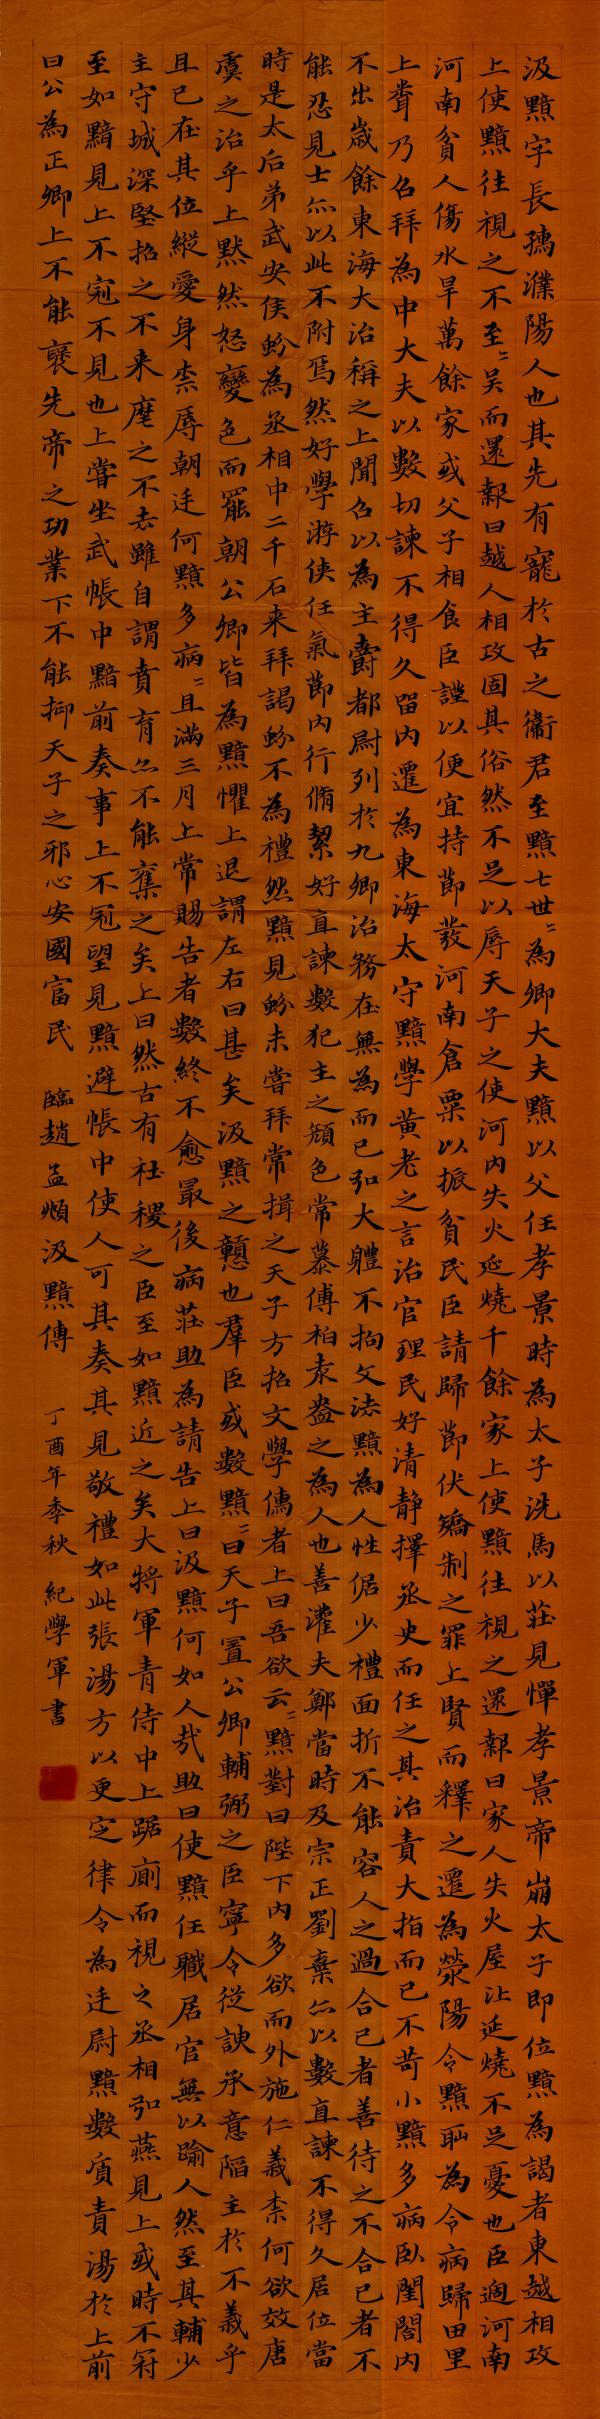 汲黯字長孺濮陽人也其先有寵於古之衞君至黯七世〻為卿大夫黯以父任孝景時為太子洗馬以莊見憚孝景帝崩太子即位黯為謁者東越相攻
上使黯往視之不至〻吴而還報曰越人相攻固其俗然不足以辱天子之使河内失火延燒千餘家上使黯往視之還報曰家人失火屋比延燒不足憂也臣過河南
河南貧人傷水旱萬餘家或父子相食臣謹以便宜持節發河南倉粟以振貧民臣請歸節伏矯制之罪上賢而釋之遷為滎陽令黯耻為令病歸田里
上聞乃召拜為中大夫以數切諫不得久留内遷為東海太守黯學黄老之言治官理民好清静擇丞史而任之其治責大指而已不苛小黯多病臥閨閤内
不出歲餘東海大治稱之上聞召以為主爵都尉列於九卿治務在無為而已弘大體不拘文法黯為人性倨少禮面折不能容人之過合己者善待之不合己者不
能忍見士亦以此不附焉然好學游俠任氣節内行脩絜好直諫數犯主之顔色常慕傅柏袁盎之為人也善灌夫鄭當時及宗正劉棄亦以數直諫不得久居位當
時是太后弟武安侯蚡為丞相中二千石来拜謁蚡不為禮然黯見蚡未嘗拜常揖之天子方招文學儒者上曰吾欲云〻黯對曰陛下内多欲而外施仁義柰何欲效唐
虞之治乎上默然怒變色而罷朝公卿皆為黯懼上退謂左右曰甚矣汲黯之戇也羣臣或數黯〻曰天子置公卿輔弼之臣寧令從諛承意陷主於不義乎
且已在其位縱愛身柰辱朝廷何黯多病〻且滿三月上常賜告者數終不愈最後病莊助為請告上曰汲黯何如人㢤助曰使黯任職居官無以踰人然至其輔少
主守城深堅招之不来麾之不去雖自謂賁育亦不能奪之矣上曰然古有社稷之臣至如黯近之矣大將軍青侍中上踞廁而視之丞相弘燕見上或時不冠
至如黯見上不冠不見也上嘗坐武帳中黯前奏事上不冠望見黯避帳中使人可其奏其見敬禮如此張湯方以更定律令為廷尉黯數質責湯於上前
曰公為正卿上不能襃先帝之功業下不能抑天子之邪心安國富民 臨趙孟頫汲黯傳 丁酉年季秋 紀學軍書